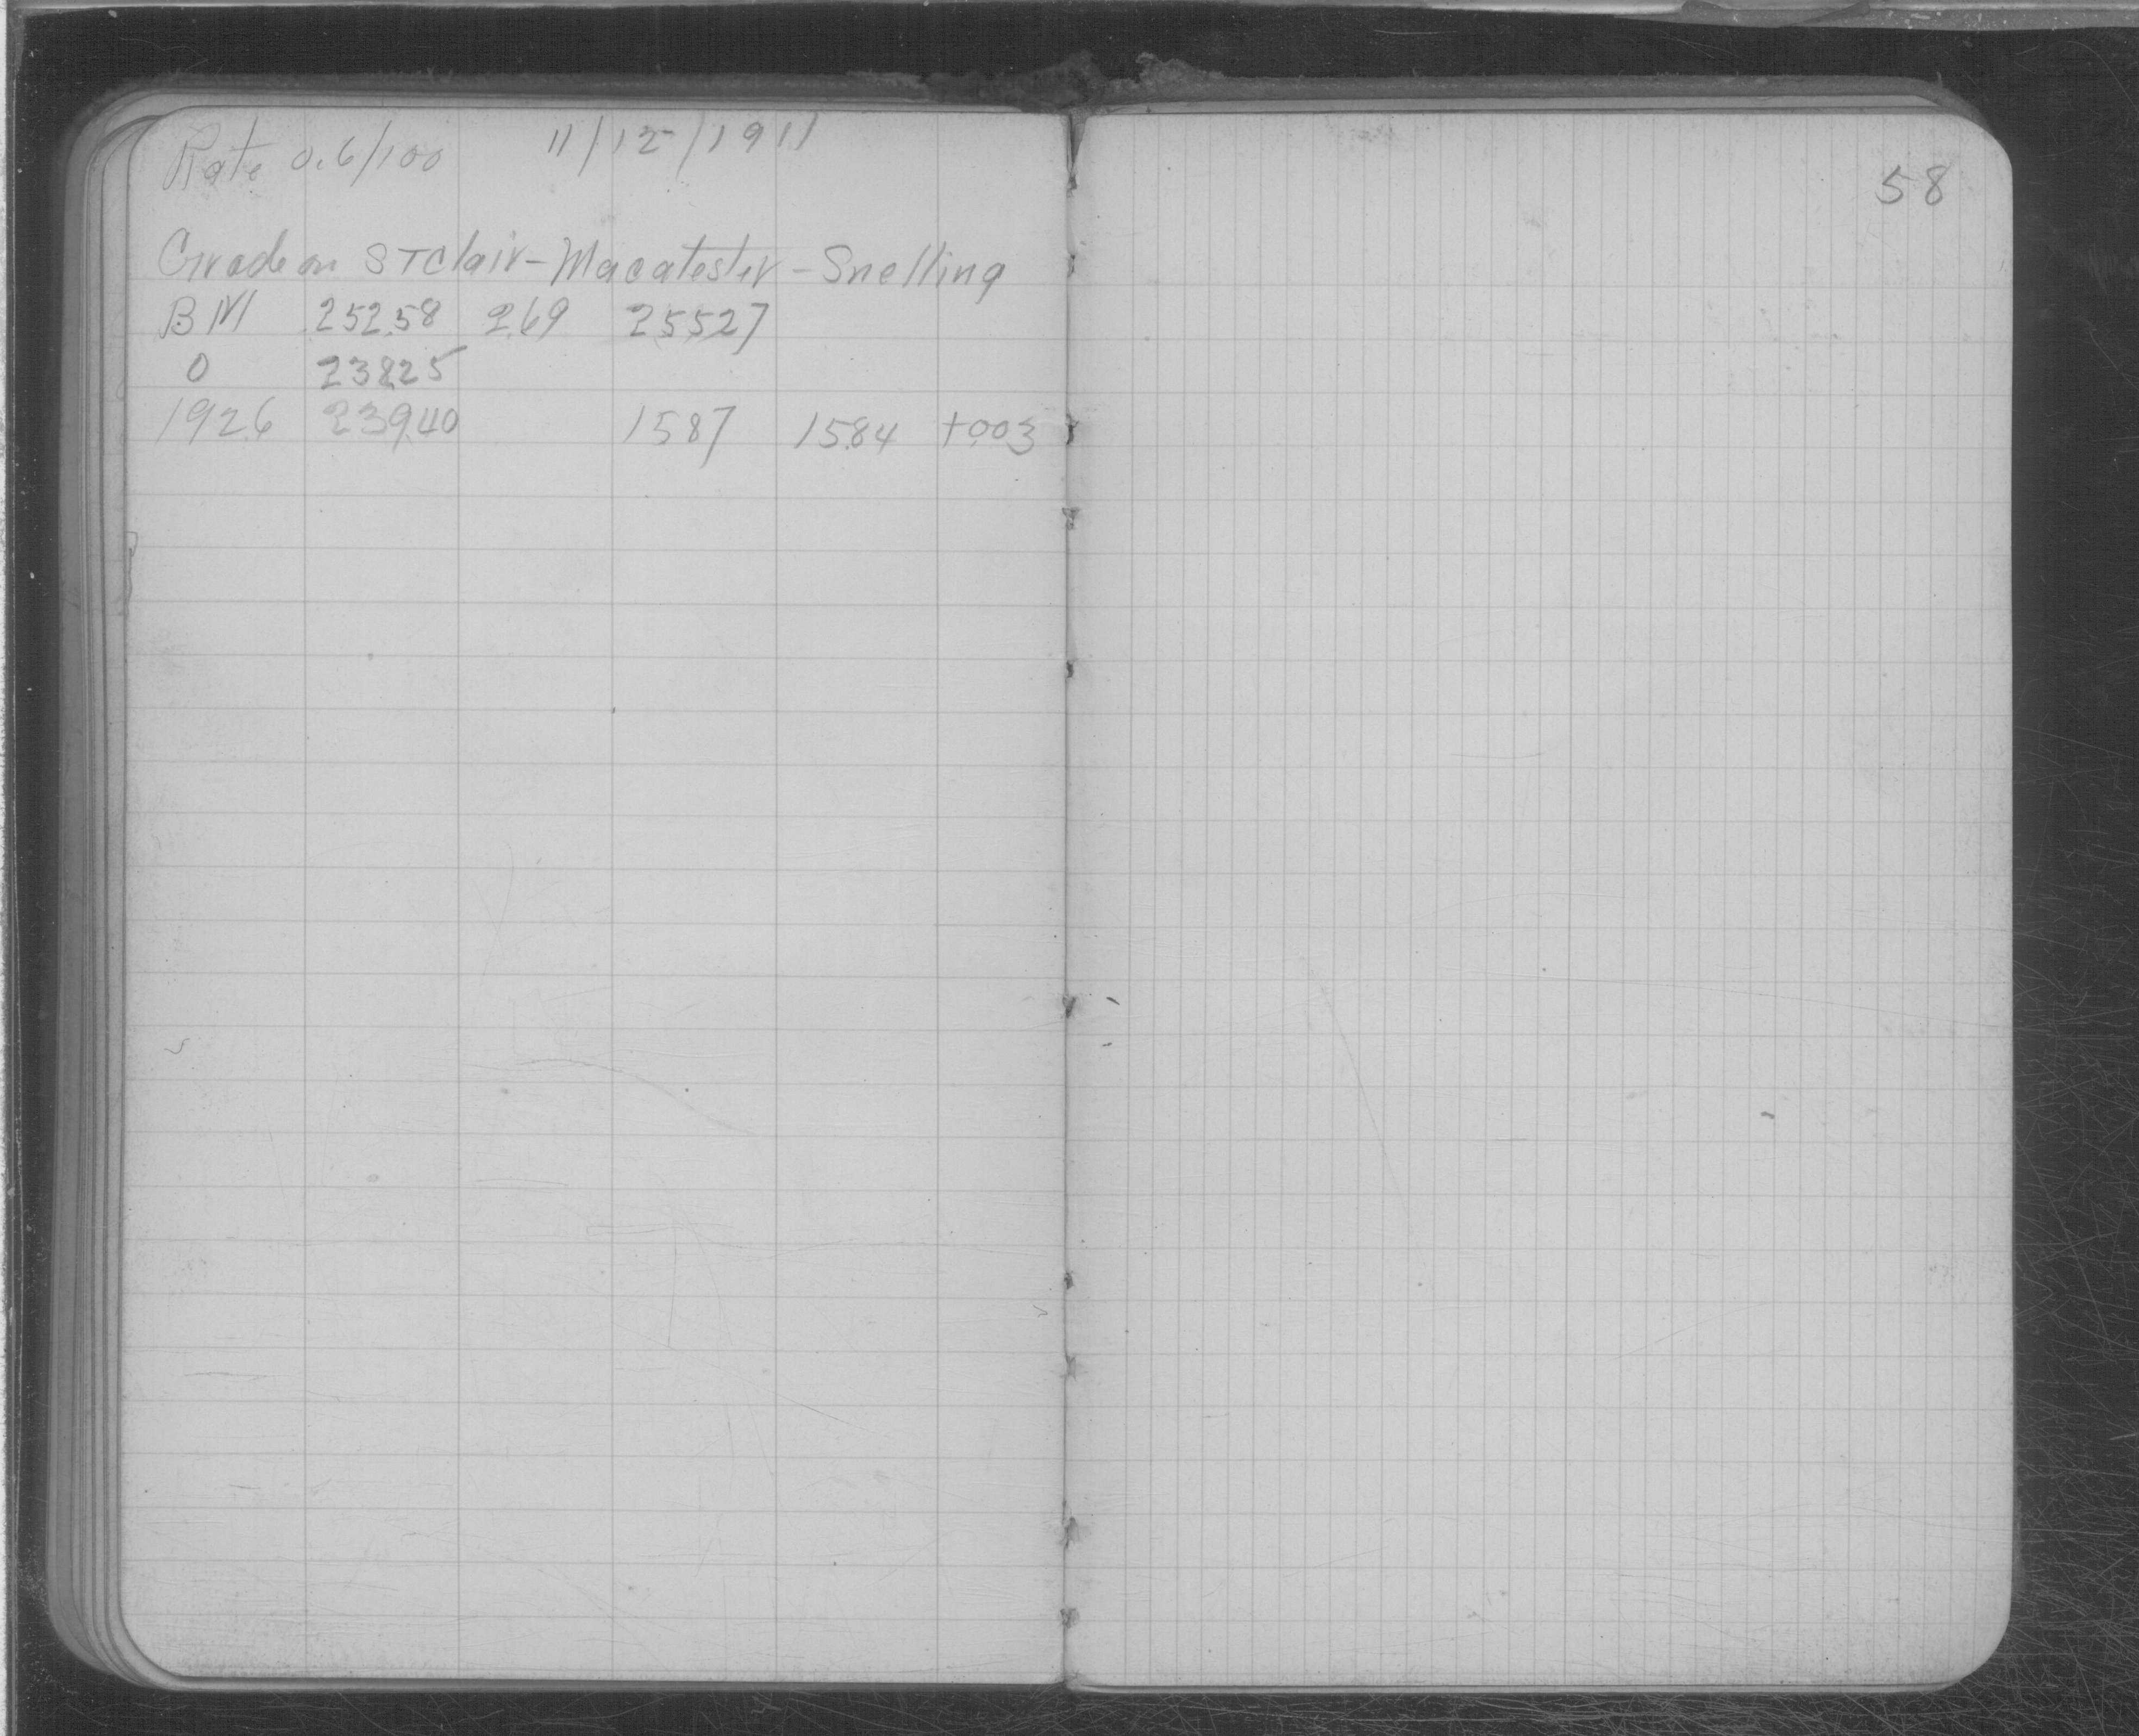 Rate 0.6/100 11/12/1911
58
Grade on St Clair - Macalester - Snelling
BM 252.58 2.69 255.27
0 238.25
192.6 239.40 15.87 15.84 +0.03